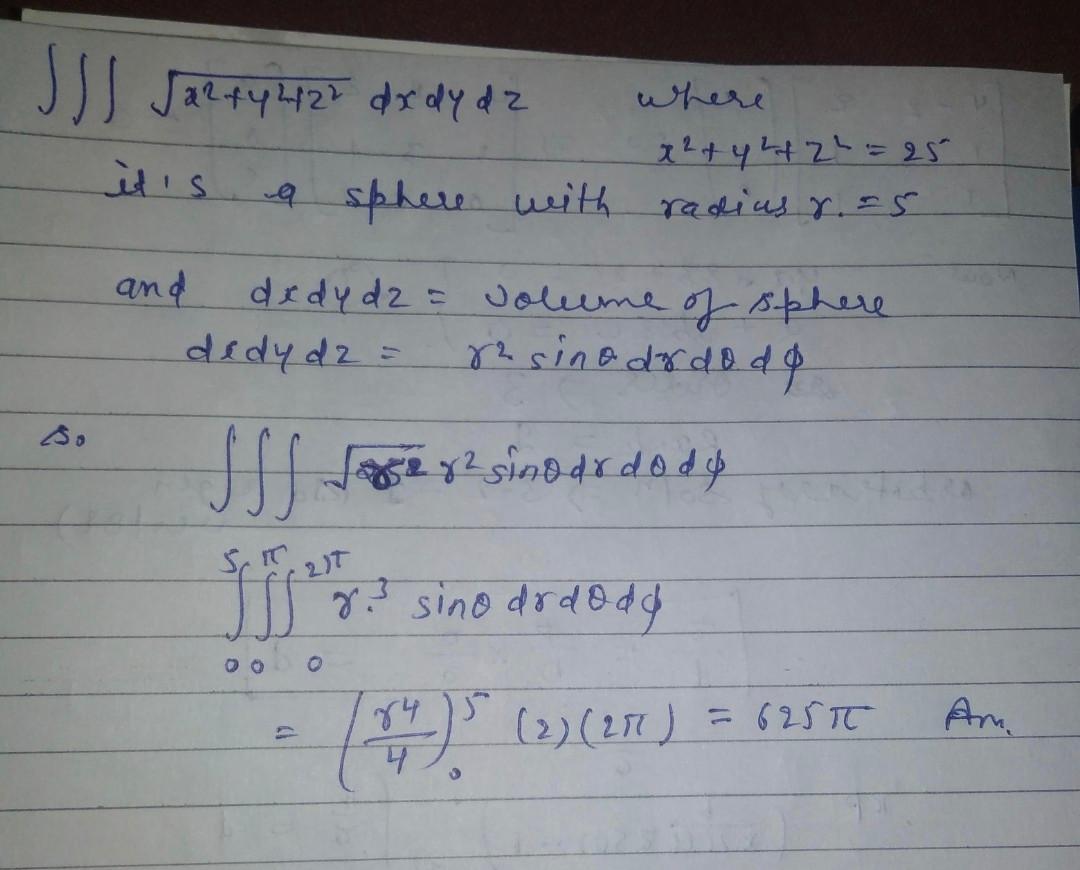 ∫∫∫ √x²+y²+z² dxdydz where
x²+y²+z² = 25
it's a sphere with radius r. = 5
and dxdydz = volume of sphere
dxdydz = r² sinθ dr dθ dϕ
so ∫∫∫ r² sinθ dr dθ dϕ
5 π 2π
∫∫∫ r.³ sinθ dr dθ dϕ
0 0 0
= (r⁴/4)⁵₀ (2)(2π) = 625π Ans.